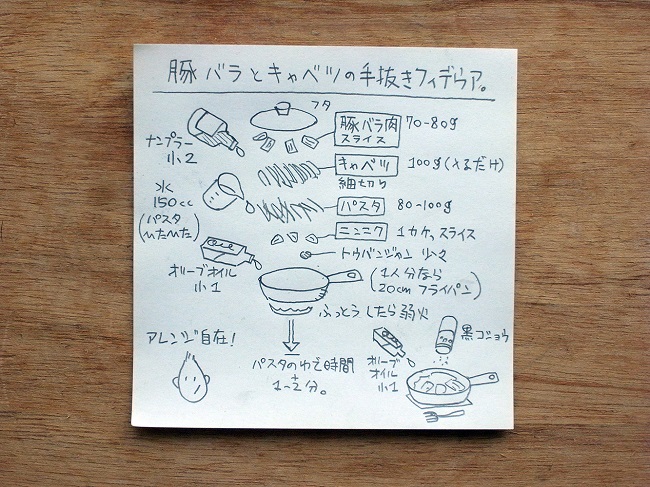 豚バラとキャベツの手抜きフィデウア。
フタ
豚バラ肉 70-80g
スライス
ナンプラー
小2
キャベツ 100g(入るだけ)
細切り
水
150cc
(パスタ
ひたひた)
パスタ 80-100g
ニンニク 1カケ、スライス
トウバンジャン 小1/2
オリーブオイル
小1
(1人分なら
20cmフライパン)
ふっとうしたら弱火
アレンジ自在!
パスタのゆで時間
+
1-2分。
オリーブ
オイル
小1
黒コショウ